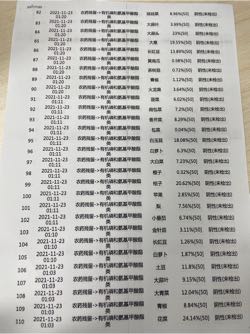 82 2021-11-23 01:20 农药残留->有机磷和氨基甲酸酯类 8.96%(50) 阴性(未检出)
83 2021-11-23 01:20 农药残留->有机磷和氨基甲酸酯类 3.99%(50) 阴性(未检出)
84 2021-11-23 01:20 农药残留->有机磷和氨基甲酸酯类 大葫头 23%(50) 阴性(未检出)
85 2021-11-23 01:20 农药残留->有机磷和氨基甲酸酯类 大葱 19.55%(50) 阴性(未检出)
86 2021-11-23 01:20 农药残留->有机磷和氨基甲酸酯类 长豇豆 11.89%(50) 阴性(未检出)
87 2021-11-23 01:20 农药残留->有机磷和氨基甲酸酯类 黄南瓜 0.58%(50) 阴性(未检出)
88 2021-11-23 01:20 农药残留->有机磷和氨基甲酸酯类 0.72%(50) 阴性(未检出)
89 2021-11-23 01:20 农药残留->有机磷和氨基甲酸酯类 青椒 1.12%(50) 阴性(未检出)
90 2021-11-23 农药残留->有机磷和氨基甲酸酯类 大油菜 3.64%(50) 阴性(未检出)
91 2021-11-23 01:11 农药残留->有机磷和氨基甲酸酯类 菠菜 4.62%(50) 阴性(未检出)
92 2021-11-23 01:11 农药残留->有机磷和氨基甲酸酯类 7.29%(50) 阴性(未检出)
93 2021-11-23 01:11 农药残留->有机磷和氨基甲酸酯类 香芹菜 8.29%(50) 阴性(未检出)
94 2021-11-23 01:11 农药残留->有机磷和氨基甲酸酯类 松菜 9.04%(50) 阴性(未检出)
95 2021-11-23 01:11 农药残留->有机磷和氨基甲酸酯类 白玉菇 18.08%(50) 阴性(未检出)
96 2021-11-23 01:11 农药残留->有机磷和氨基甲酸酯类 白萝卜 6.3%(50) 阴性(未检出)
97 2021-11-23 01:11 农药残留->有机磷和氨基甲酸酯类 大白菜 7.23%(50) 阴性(未检出)
98 2021-11-23 01:11 农药残留->有机磷和氨基甲酸酯类 橙子 0.32%(50) 阴性(未检出)
99 2021-11-23 01:11 农药残留->有机磷和氨基甲酸酯类 桔子 20.62%(50) 阴性(未检出)
100 2021-11-23 01:11 农药残留->有机磷和氨基甲酸酯类 苹果 2.85%(50) 阴性(未检出)
101 2021-11-23 01:11 农药残留->有机磷和氨基甲酸酯类 梨 7.56%(50) 阴性(未检出)
102 2021-11-23 01:11 农药残留->有机磷和氨基甲酸酯类 小番茄 6.74%(50) 阴性(未检出)
103 2021-11-23 01:11 农药残留->有机磷和氨基甲酸酯类 金针菇 3.11%(50) 阴性(未检出)
104 2021-11-23 01:10 农药残留->有机磷和氨基甲酸酯类 长豇豆 1.26%(50) 阴性(未检出)
105 2021-11-23 01:10 农药残留->有机磷和氨基甲酸酯类 白萝卜 1.87%(50) 阴性(未检出)
106 2021-11-23 01:03 农药残留->有机磷和氨基甲酸酯类 土豆 11.8%(50) 阴性(未检出)
107 2021-11-23 01:03 农药残留->有机磷和氨基甲酸酯类 大蒜叶 9.15%(50) 阴性(未检出)
108 2021-11-23 01:03 农药残留->有机磷和氨基甲酸酯类 大青菜 12.04%(50) 阴性(未检出)
109 2021-11-23 01:03 农药残留->有机磷和氨基甲酸酯类 青椒 8.84%(50) 阴性(未检出)
110 2021-11-23 01:03 农药残留->有机磷和氨基甲酸酯类 花菜 24.14%(50) 阴性(未检出)